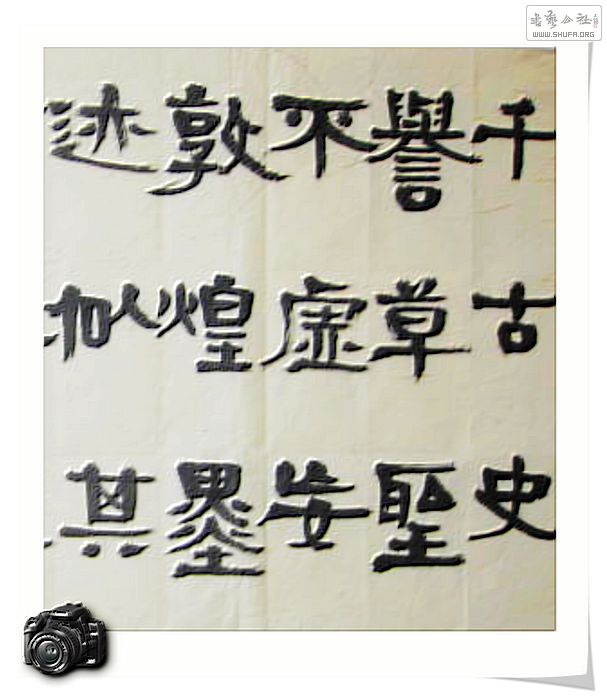 千古史
譽草聖
不虛
敦煌墨
迹似其
書藝公社
WWW.SHUFA.ORG